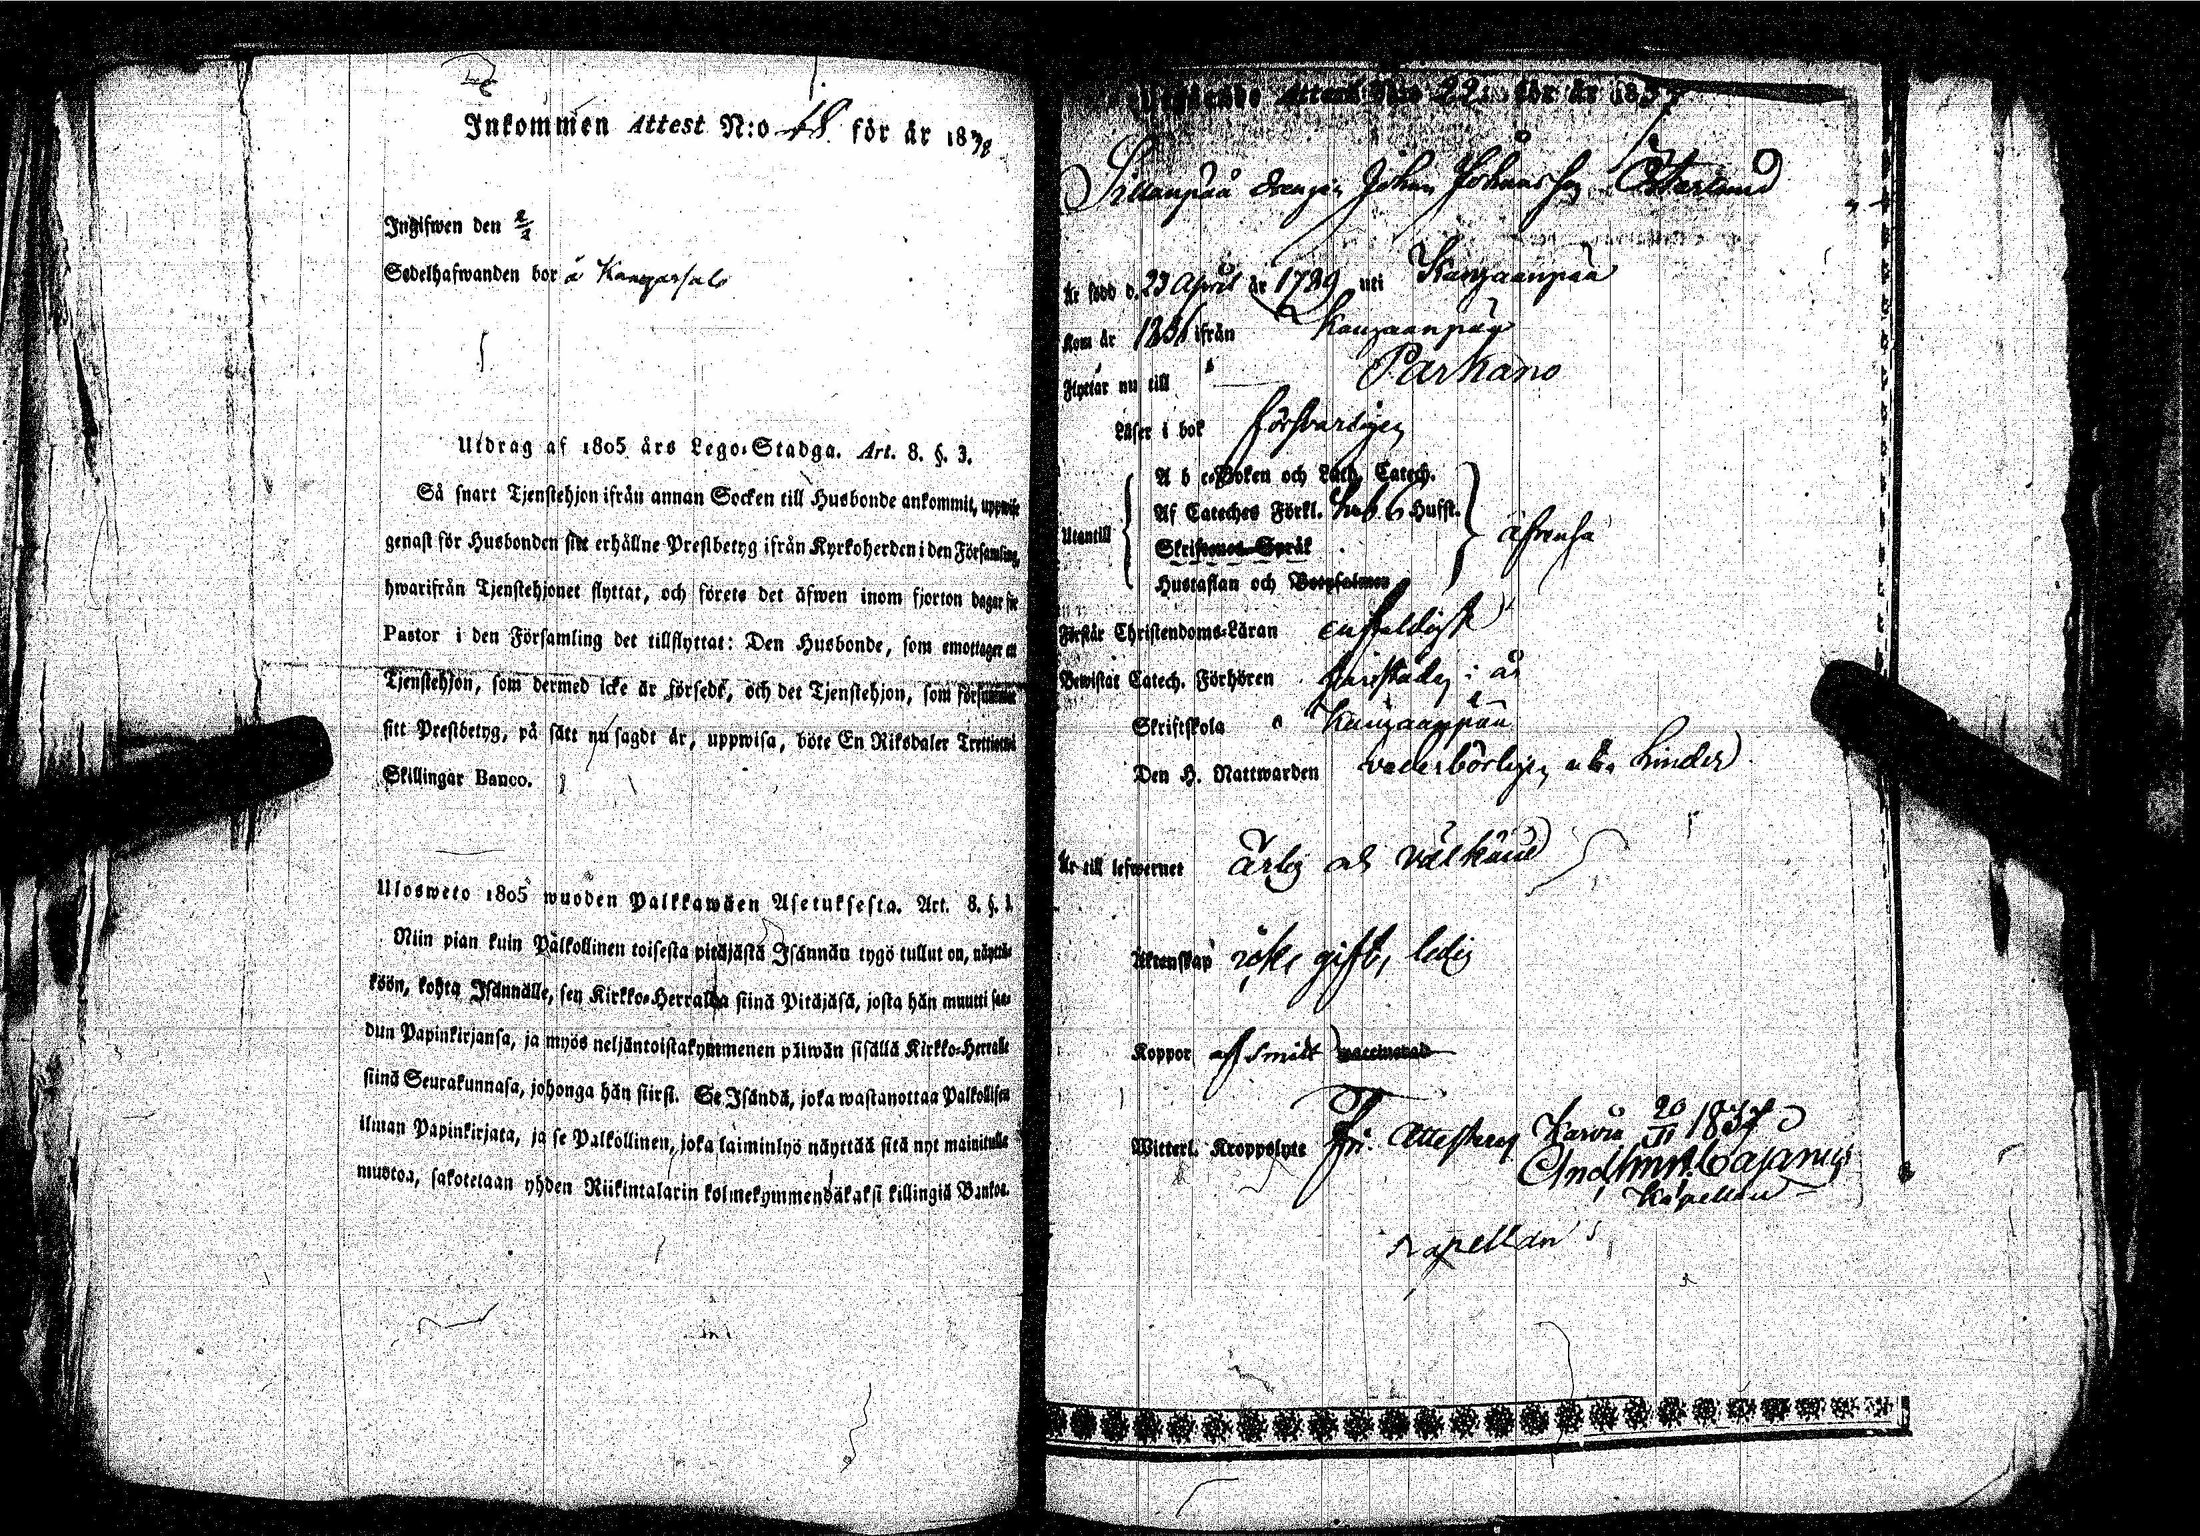 Inkommen Attest N:o 18. för år 1838
Ingifwen den 2/2
Sedelhafwanden bor å Kangarsalo
Utdrag af 1805 års Lego-Stadga. Art. 8. §. 3.
Så snart Tjenstehjon ifrån annan Socken till Husbonde ankommit, uppwise
genast för Husbonden sitt erhållne Prestbetyg ifrån Kyrkoherden i den Församling,
hwarifrån Tjenstehjonet flyttat, och förete det äfwen inom fjorton dagar för
Pastor i den Församling det tillflyttat: Den Husbonde, som emottager ett
Tjenstehjon, som dermed icke är försedt, och det Tjenstehjon, som försummar
sitt Prestbetyg, på sätt nu sagdt är, uppwisa, böte En Riksdaler Trettiotwå
Skillingar Banco.
Ulosweto 1805 wuoden Palkkawäen Asetuksesta. Art. 8. §. 3.
Niin pian kuin Palkollinen toisesta pitäjästä Isännän tygö tullut on, näyttä-
köön, kohta Isännälle, sen Kirkko-Herralda siinä Pitäjäsä, josta hän muutti saa-
dun Papinkirjansa, ja myös neljäntoistakymmenen päiwän sisällä Kirkko-Herralle
siinä Seurakunnasa, johonga hän siirsi. Se Isändä, joka wastanottaa Palkollisen
ilman Papinkirjata, ja se Palkollinen, joka laiminlyö näyttää sitä nyt mainitulla
muotoa, sakotetaan yhden Riikintalarin kolmekymmendäkaksi killingiä Bankos.
Utgående Attest N:o 22. för år 1837
Sillanpää drengen Johan Johansson Österlund
Är född d. 23 April år 1789 uti Kangaanpää
Kom år 1836 ifrån Kangaanpää
Flyttar nu till Parkano
Läser i bok försvarligen
A b c-Boken och Luth. Catech.
Af Cateches Förkl. kap. 6 Husst.
Utantill
Skriftenes Språk
Hustaflan och Botpsalmer
Förstår Christendoms-Läran enfaldigt
Bewistat Catech. Förhören i år
Skriftskola Kangaanpää
Den H. Nattwarden vederbörligen utan hinder
Är till lefwernet ärlig och välkänd
Äktenskap icke gift, ledig
Koppor haft smått vaccinerad
Witterl. Kroppslyte Fri. Attesteras Karvia 20/11 1837
And. Imm. Cajanus
Kapellan
Kapellan